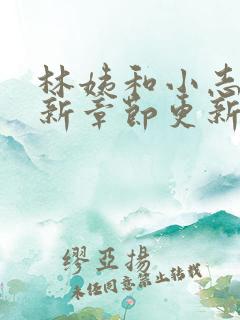 林姨和小志
新章节更新
缪亚扬
未经同意禁止转载